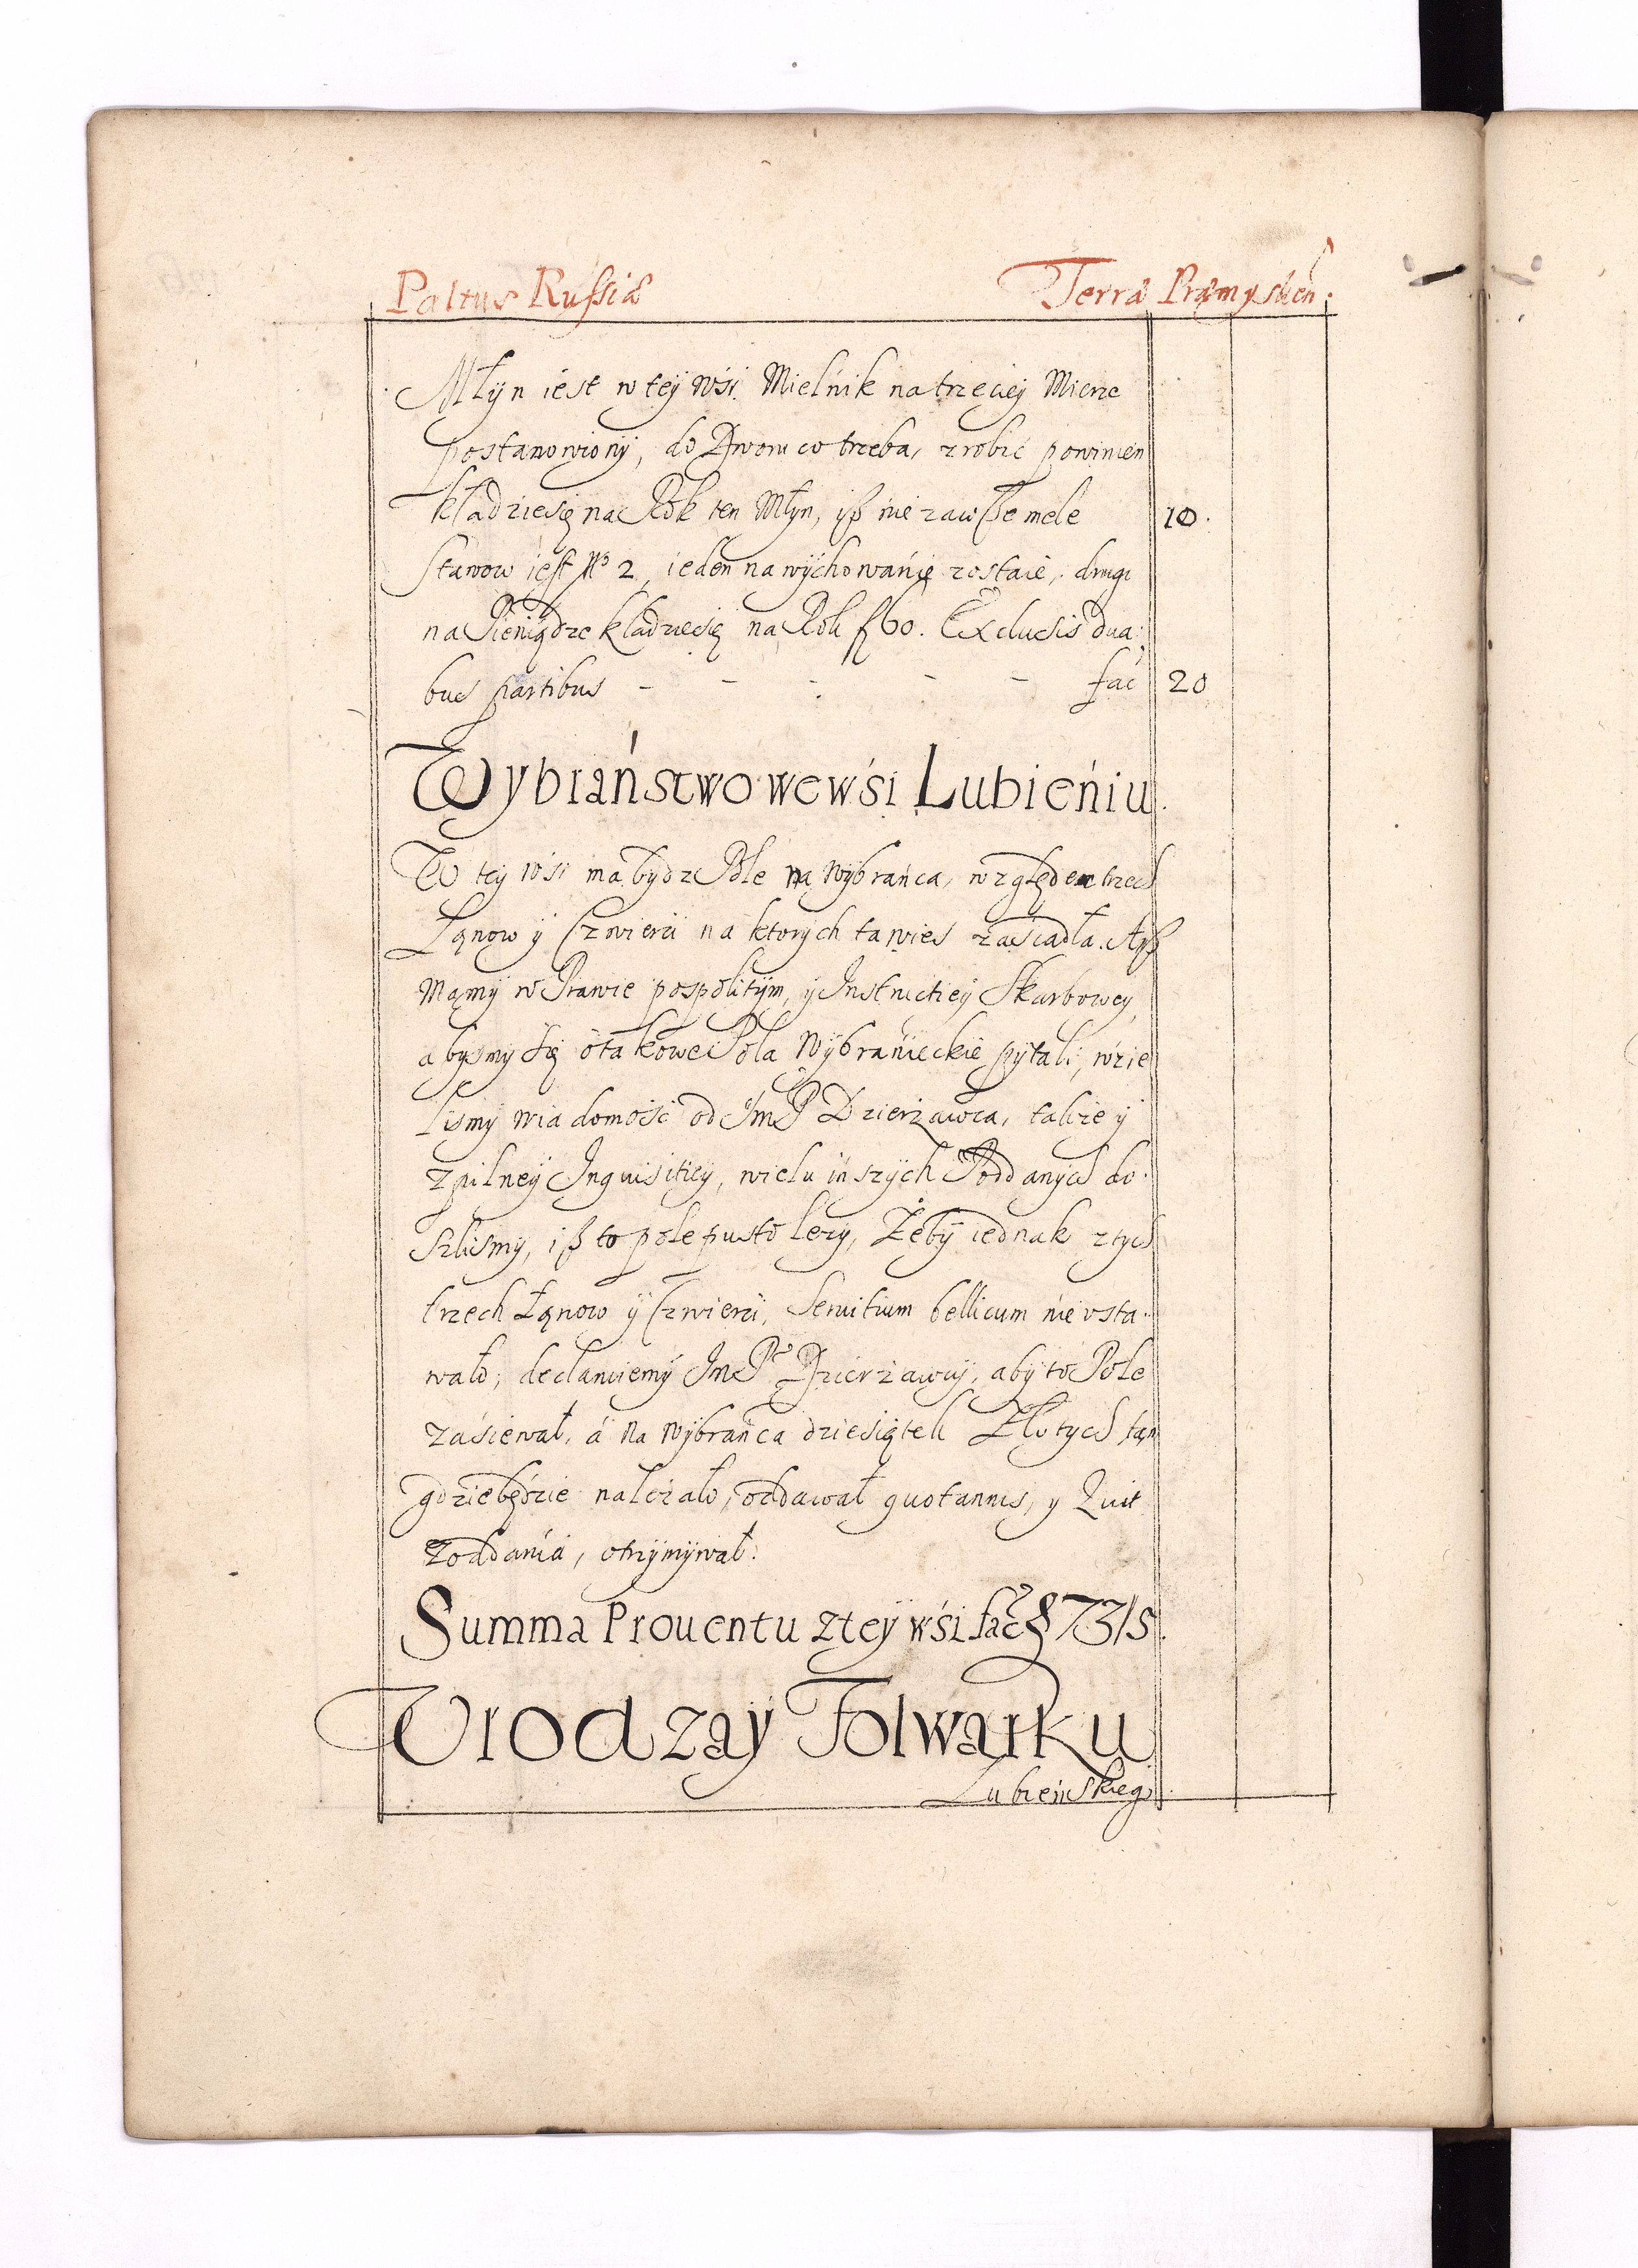 Paltus Russiæ Terra Præmyslien.
Młyn iest w tey wśi. Mielnik na trzeciey Mierze
postanowiony, do Dworu co trzeba, zrobić powinien
kładziesię na Rok ten Młyn, iß nie zawße mele 10.
Stawow iest No 2, ieden na wychowanie zostaie, drugi
na Pieniądze kładziesię na Rok f 60. Exclusis dua
bus partibus - - - - - fac 20
Wybraństwo we wśi Lubieńiu.
W tey wśi ma bydz Pole na wybrańca, względem trzech
Łanow y Czwierci na ktorych ta wies zaśiadła. Aiß
mamy w Prawie pospolitym, y Instructiey Skarbowey,
abysmy się o takowe Pola Wybranieckie pytali, wzie
lismy wiadomość od JmP Dzierżawca, także y
z pilney Inquisitiey, wielu inszych Poddanych do
szlismy, iß to pole pusto leży, Żeby iednak z tych
trzech Łanow y Czwierci, Seruitium bellicum nie vsta
wało; declaruiemy JmP Dzierżawcy, aby to Pole
zaśiewał, á na wybrańca dziesiątek Złotych tam
gdzie będzie należało, oddawał quotannis, y Quit
z oddania, otrzymywał.
Summa Prouentu z tey wśi fac f 73/5.
Vrodzay Folwarku
Lubieńskieg